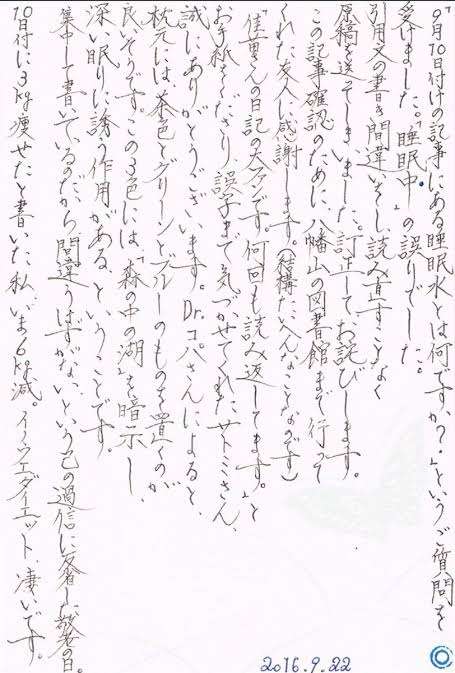 「9月10日付けの記事にある睡眠水とは何ですか?」というご質問を
受けました。「睡眠中」の誤りでした。
引用文の書き間違いをし、読み直すことなく
原稿を送ってしまいました。訂正してお詫びします。
この記事確認のために、八幡山の図書館まで行って
くれた友人に感謝します(結構たいへんなことなのです)
「佳男さんの日記の大ファンです。何回も読み返してます。」と
お手紙をくださり、誤字まで気づかせてくれたサトミさん、
誠にありがとうございます。Dr.コパさんによると、
枕元には、茶色とグリーンとブルーのものを置くのが
良いそうです。この3色には、「森の中の湖」を暗示し、
深い眠りに誘う作用がある、ということです。
集中して書いているのだから間違うはずがない、という己の過信に反省した敬老の日。
10日付に3kg痩せたと書いた私、いま6kg減。イノウエダイエット、凄いです。
2016.9.22